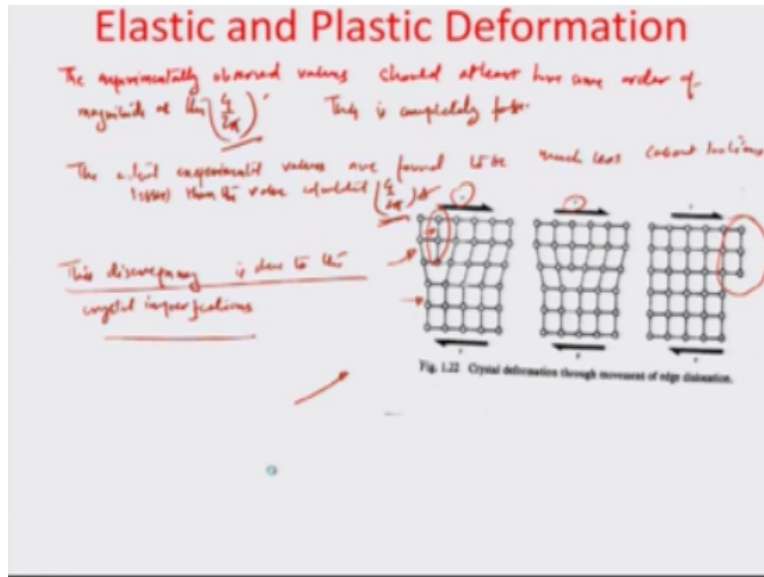 Elastic and Plastic Deformation
The experimentally observed values should atleast have same order of
magnitude as the (G/2π). This is completely false.
The actual experimental values are found to be much less (about
lesser) than the value (G/2π)
This discrepancy is due to the
crystal imperfections
Fig. 1.22 Crystal deformation through movement of edge dislocation.